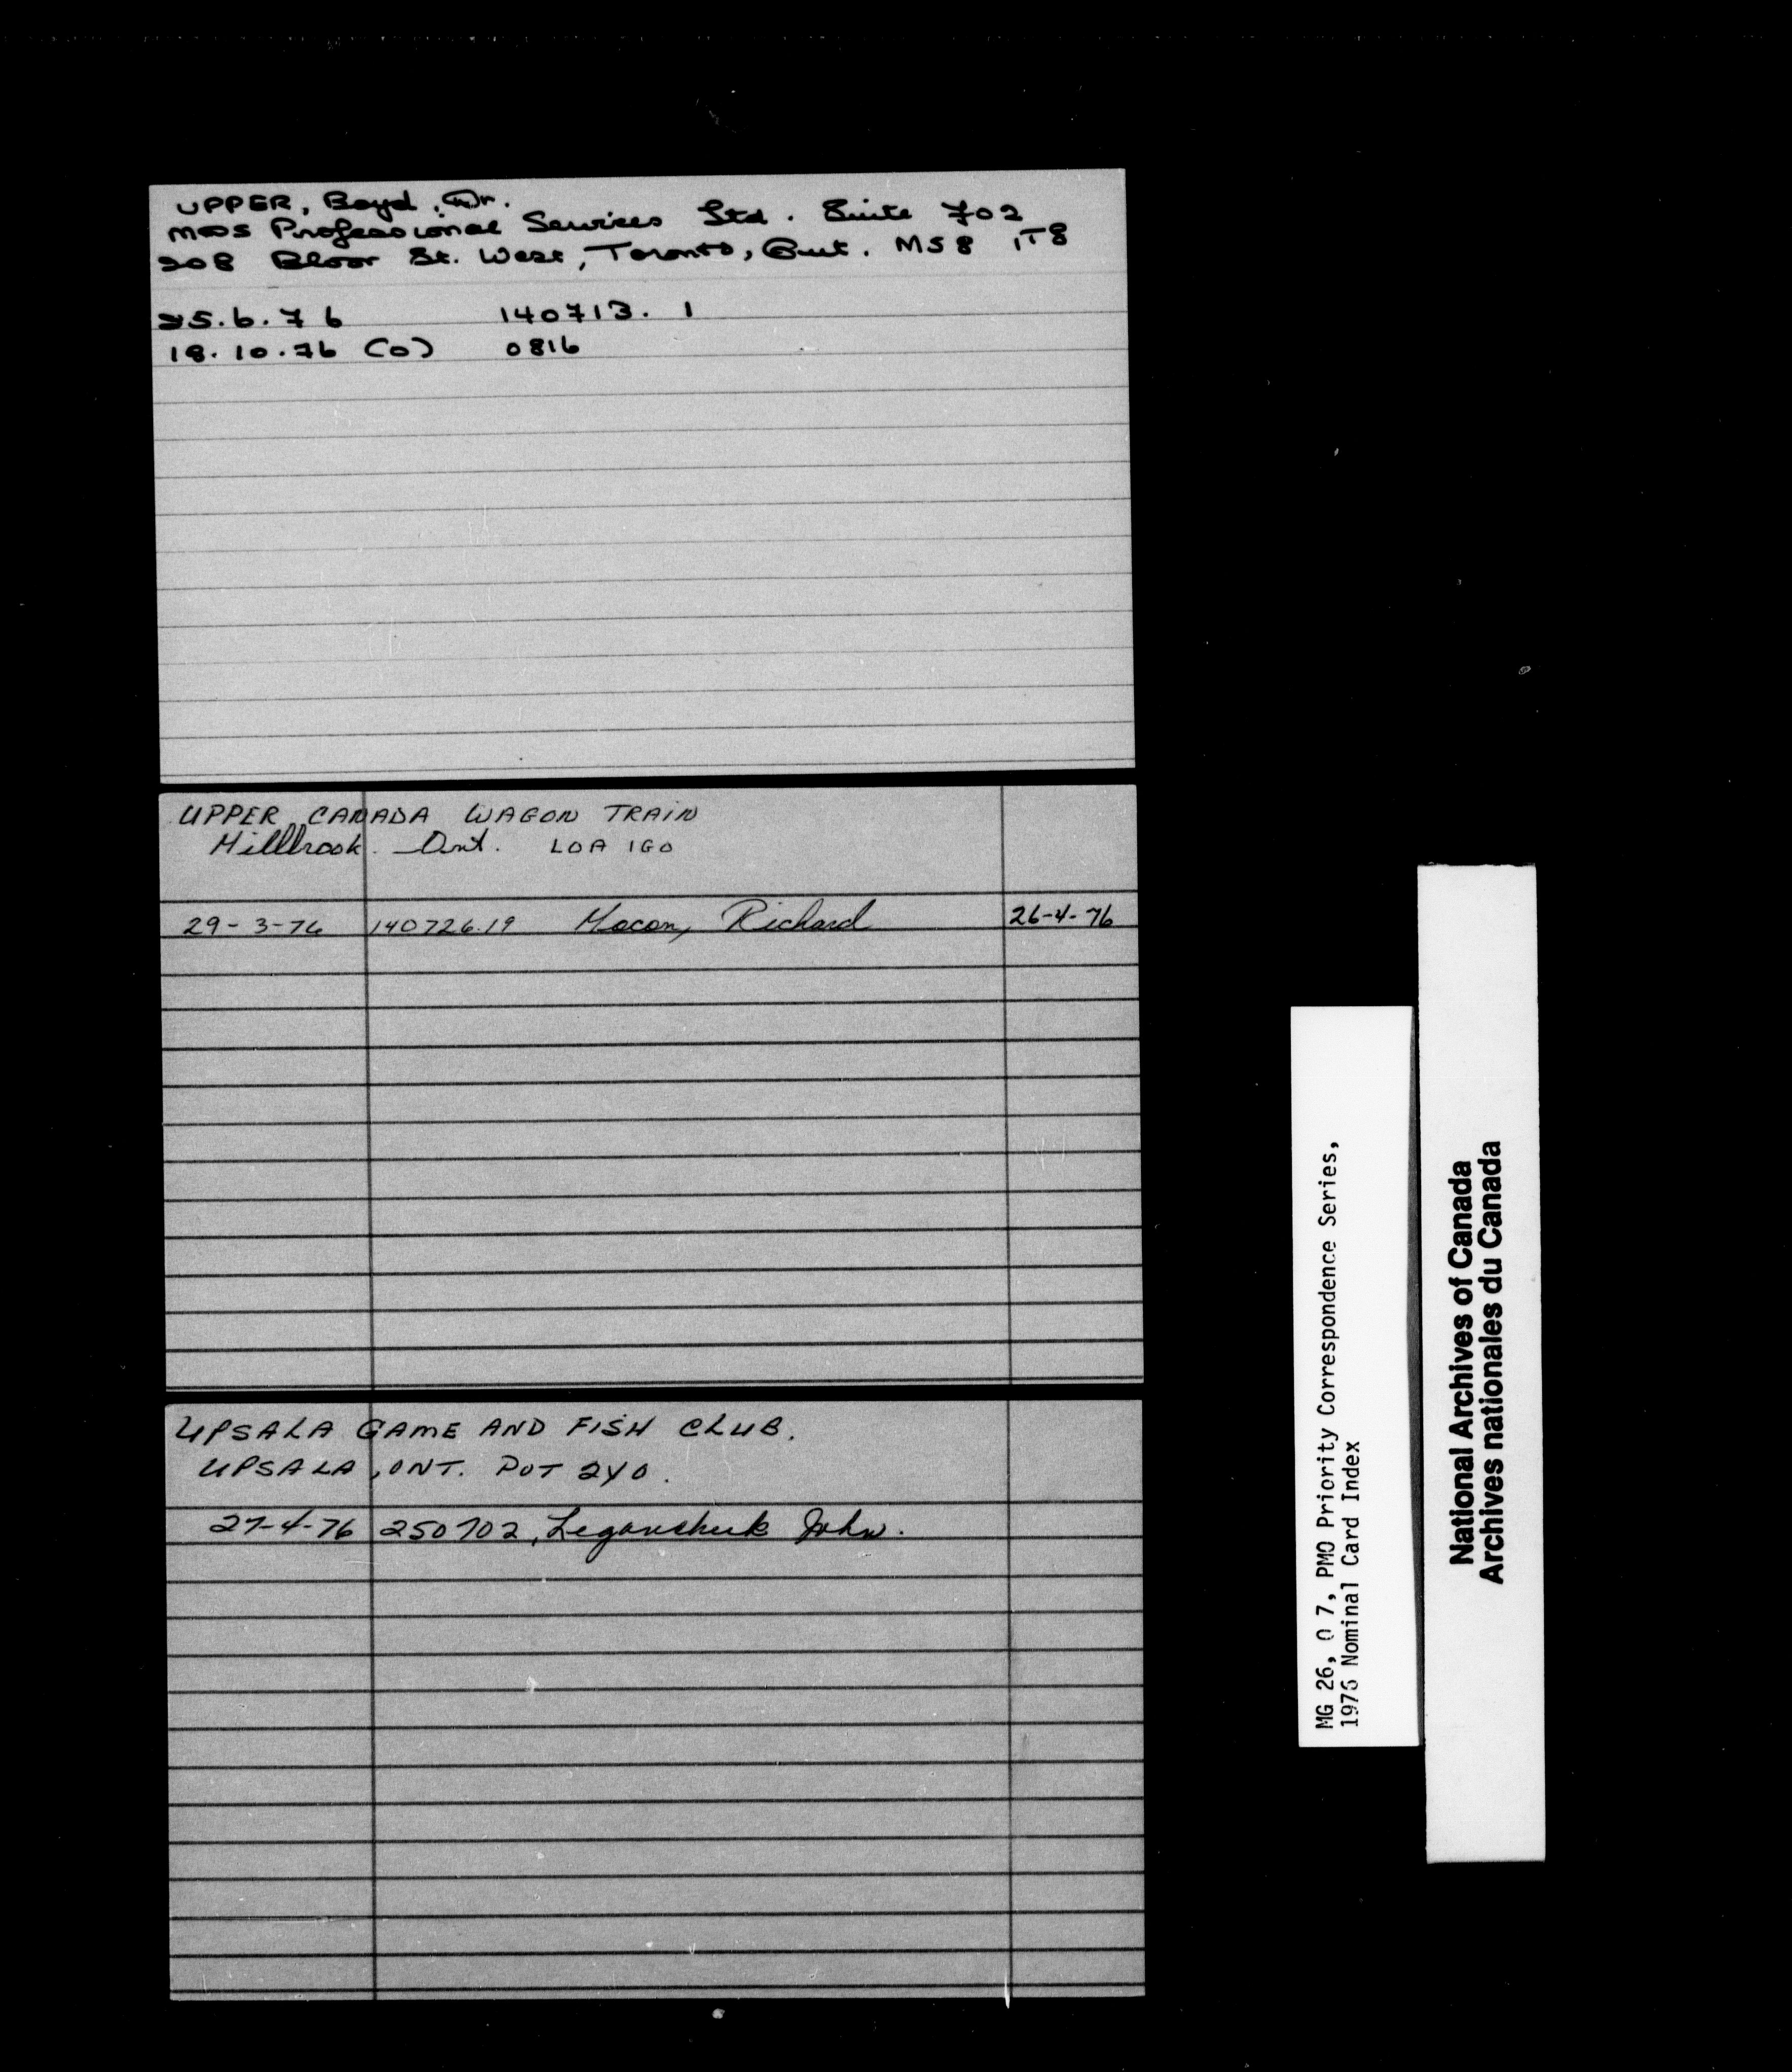 UPPER, Boyd, Dr.
MDS Professional Services Ltd. Suite 702
208 Bloor St. West, Toronto, Ont. M58 1T8
25.6.76 140713. 1
18.10.76 (O) 0816
UPPER CANADA WAGON TRAIN
Millbrook. Ont. LOA 1GO
29-3-76 140726.19 Macon, Richard 26-4-76
UPSALA GAME AND FISH CLUB.
UPSALA, ONT. POT 2Y0.
27-4-76 250702, John.
MG 26, O 7, PMO Priority Correspondence Series,
1976 Nominal Card Index
National Archives of Canada
Archives nationales du Canada